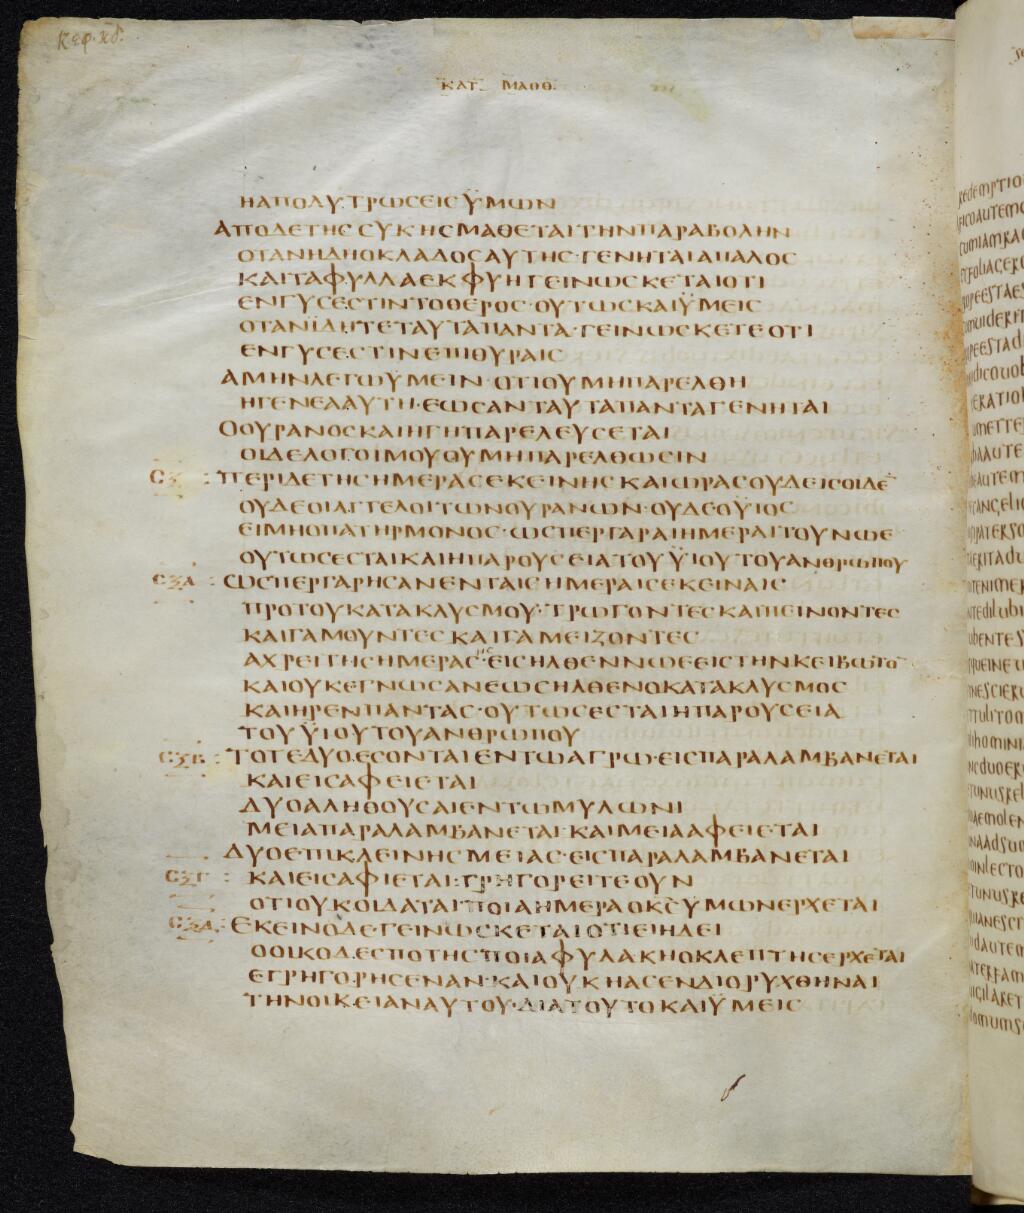 κεφ. κδ.
ΚΑΤ ΜΑΘΘ.
ΗΑΠΟΛΥΤΡΩΣΕΙΣΫΜΩΝ
ΑΠΟΔΕΤΗΣΣΥΚΗΣΜΑΘΕΤΑΙΤΗΝΠΑΡΑΒΟΛΗΝ
ΟΤΑΝΗΔΗΟΚΛΑΔΟΣΑΥΤΗΣ·ΓΕΝΗΤΑΙΑΠΑΛΟΣ
ΚΑΙΤΑΦΥΛΛΑΕΚΦΥΗΓΕΙΝΩΣΚΕΤΑΙΟΤΙ
ΕΝΓΥΣΕΣΤΙΝΤΟΘΕΡΟΣ·ΟΥΤΩΣΚΑΙΫΜΕΙΣ
ΟΤΑΝΪΔΗΤΕΤΑΥΤΑΠΑΝΤΑ·ΓΕΙΝΩΣΚΕΤΕΟΤΙ
ΕΝΓΥΣΕΣΤΙΝΕΠΙΘΥΡΑΙΣ
ΑΜΗΝΛΕΓΩΫΜΕΙΝ·ΟΤΙΟΥΜΗΠΑΡΕΛΘΗ
ΗΓΕΝΕΑΑΥΤΗ·ΕΩΣΑΝΤΑΥΤΑΠΑΝΤΑΓΕΝΗΤΑΙ
ΟΟΥΡΑΝΟΣΚΑΙΗΓΗΠΑΡΕΛΕΥΣΕΤΑΙ
ΟΙΔΕΛΟΓΟΙΜΟΥΟΥΜΗΠΑΡΕΛΘΩΣΙΝ
ΣΞ : ΠΕΡΙΔΕΤΗΣΗΜΕΡΑΣΕΚΕΙΝΗΣΚΑΙΩΡΑΣΟΥΔΕΙΣΟΙΔΕ
ΟΥΔΕΟΙΑΓΓΕΛΟΙΤΩΝΟΥΡΑΝΩΝ·ΟΥΔΕΟΥΙΟΣ
ΕΙΜΗΟΠΑΤΗΡΜΟΝΟΣ·ΩΣΠΕΡΓΑΡΑΙΗΜΕΡΑΙΤΟΥΝΩΕ
ΟΥΤΩΣΕΣΤΑΙΚΑΙΗΠΑΡΟΥΣΕΙΑΤΟΥΫΙΟΥΤΟΥΑΝΘΡΩΠΟΥ
ΣΞΑ : ΩΣΠΕΡΓΑΡΗΣΑΝΕΝΤΑΙΣΗΜΕΡΑΙΣΕΚΕΙΝΑΙΣ
ΠΡΟΤΟΥΚΑΤΑΚΛΥΣΜΟΥ·ΤΡΩΓΟΝΤΕΣΚΑΙΠΕΙΝΟΝΤΕΣ
ΚΑΙΓΑΜΟΥΝΤΕΣΚΑΙΓΑΜΕΙΖΟΝΤΕΣ
ΑΧΡΕΙΤΗΣΗΜΕΡΑΣ·ΗΣΕΙΣΗΛΘΕΝΝΩΕΕΙΣΤΗΝΚΕΙΒΩΤΟ
ΚΑΙΟΥΚΕΓΝΩΣΑΝΕΩΣΗΛΘΕΝΟΚΑΤΑΚΛΥΣΜΟΣ
ΚΑΙΗΡΕΝΠΑΝΤΑΣ·ΟΥΤΩΣΕΣΤΑΙΗΠΑΡΟΥΣΕΙΑ
ΤΟΥΫΙΟΥΤΟΥΑΝΘΡΩΠΟΥ
ΣΞΒ : ΤΟΤΕΔΥΟ·ΕΣΟΝΤΑΙΕΝΤΩΑΓΡΩ·ΕΙΣΠΑΡΑΛΑΜΒΑΝΕΤΑΙ
ΚΑΙΕΙΣΑΦΕΙΕΤΑΙ
ΔΥΟΑΛΗΘΟΥΣΑΙΕΝΤΩΜΥΛΩΝΙ
ΜΕΙΑΠΑΡΑΛΑΜΒΑΝΕΤΑΙ·ΚΑΙΜΕΙΑΑΦΕΙΕΤΑΙ
ΔΥΟΕΠΙΚΛΕΙΝΗΣΜΕΙΑΣ·ΕΙΣΠΑΡΑΛΑΜΒΑΝΕΤΑΙ
ΣΞΓ : ΚΑΙΕΙΣΑΦΙΕΤΑΙ:ΓΡΗΓΟΡΕΙΤΕΟΥΝ
ΟΤΙΟΥΚΟΙΔΑΤΑΙΠΟΙΑΗΜΕΡΑΟΚΣΥΜΩΝΕΡΧΕΤΑΙ
ΣΞΔ : ΕΚΕΙΝΟΔΕΓΕΙΝΩΣΚΕΤΑΙΟΤΙΕΙΗΔΕΙ
ΟΟΙΚΟΔΕΣΠΟΤΗΣΠΟΙΑΦΥΛΑΚΗΟΚΛΕΠΤΗΣΕΡΧΕΤΑΙ
ΕΓΡΗΓΟΡΗΣΕΝΑΝ·ΚΑΙΟΥΚΗΑΣΕΝΔΙΟΡΥΧΘΗΝΑΙ
ΤΗΝΟΙΚΕΙΑΝΑΥΤΟΥ·ΔΙΑΤΟΥΤΟΚΑΙΫΜΕΙΣ